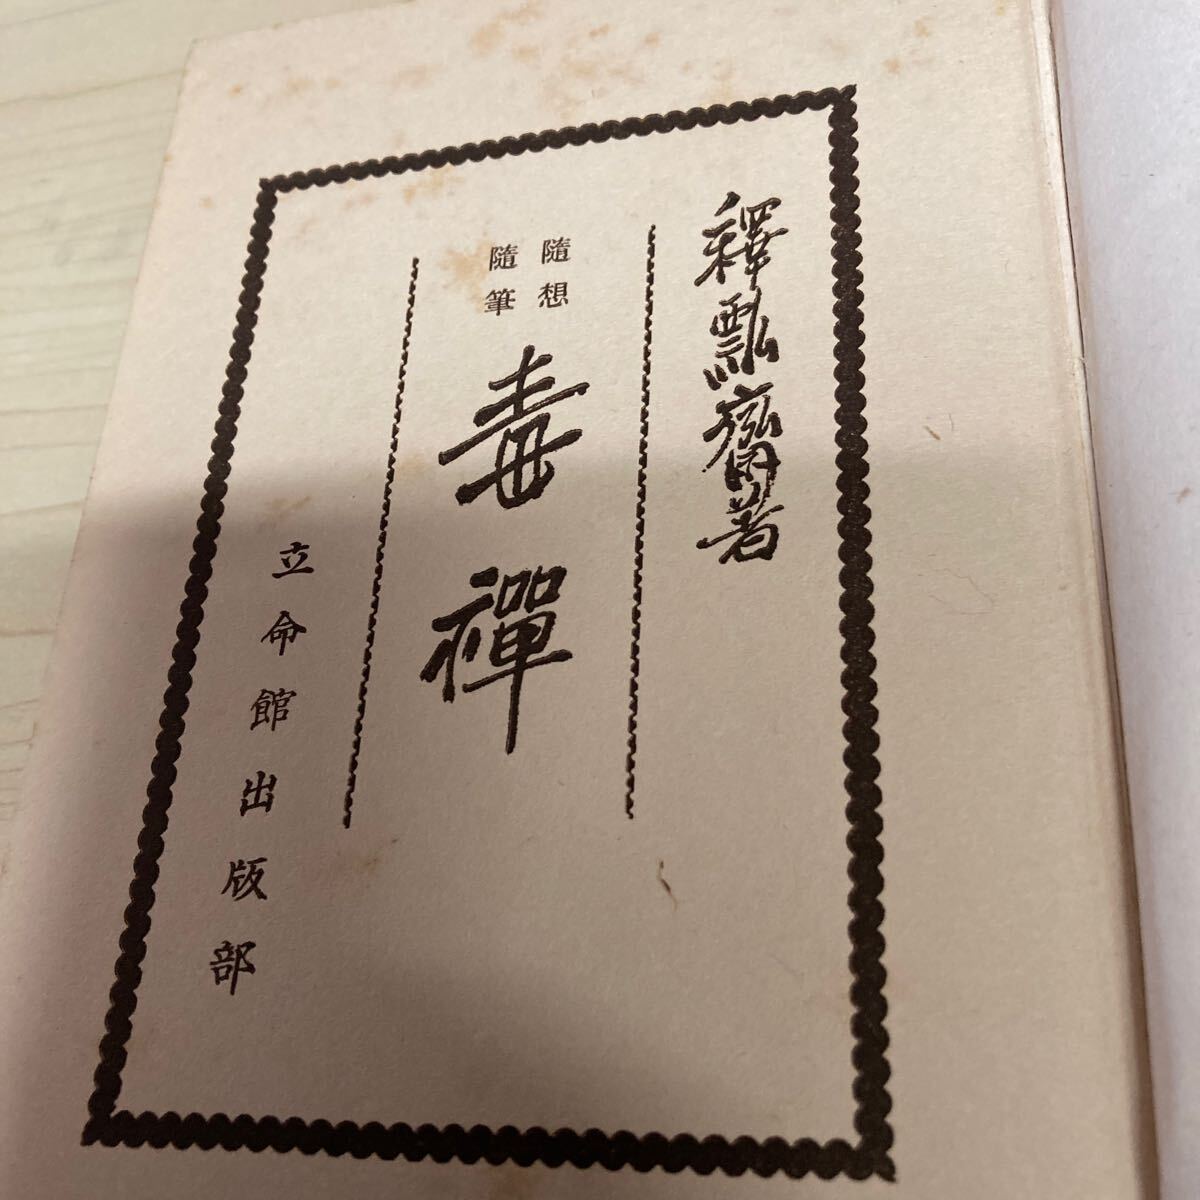 釋瓢齋著
隨想
隨筆
毒禪
立命館出版部